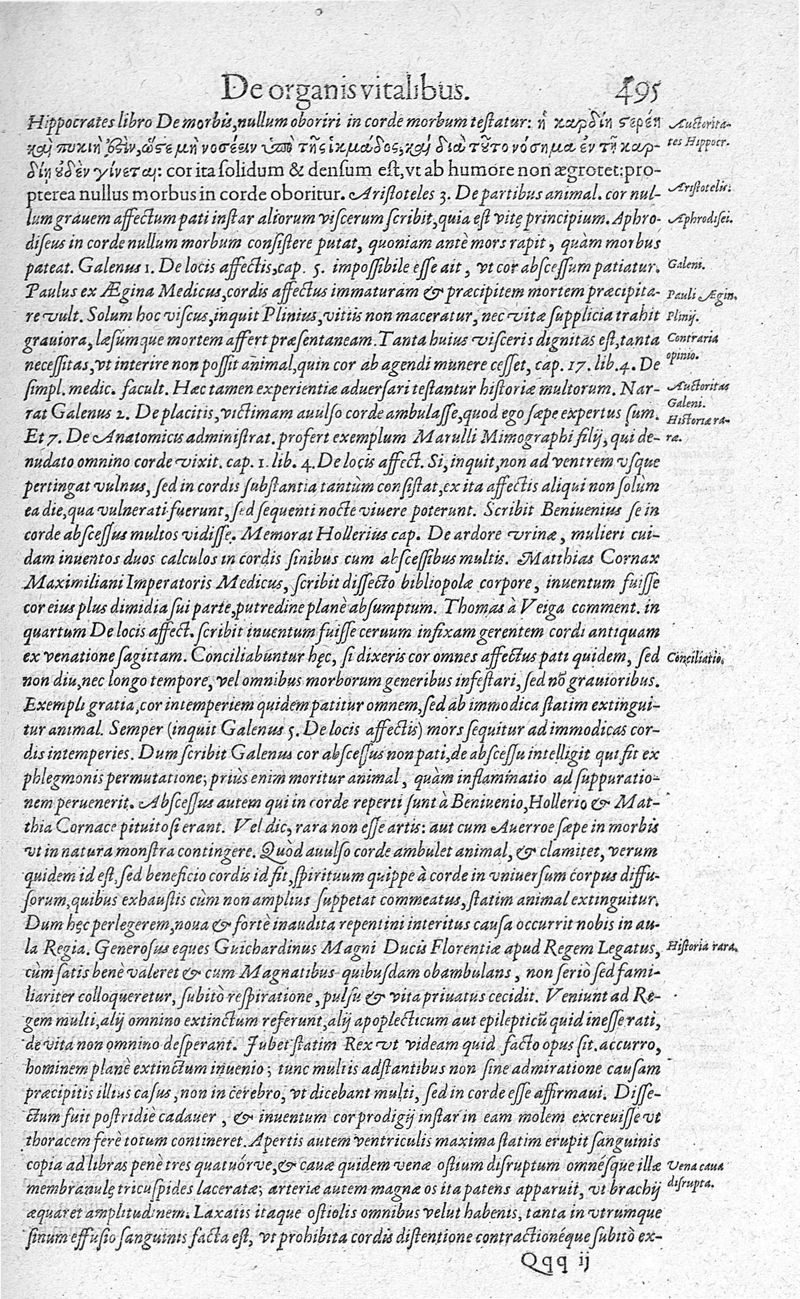 De organis vitalibus. 495
Hippocrates libro De morbis, nullum oboriri in corde morbum testatur: ἡ καρδίη στερέη
καὶ πυκινὴ ὥστε μὴ νοσέειν ὑπὸ τῆς ἰκμάδος, καὶ διὰ τοῦτο νόσημα ἐν τῇ καρ-
δίῃ οὐδὲν γίνεται: cor ita solidum & densum est, vt ab humore non ægrotet; pro-
pterea nullus morbus in corde oboritur. Aristoteles 3. De partibus animal. cor nul-
lum grauem affectum pati instar aliorum viscerum scribit, quia est vitę principium. Aphro-
diseus in corde nullum morbum consistere putat, quoniam antè mors rapit, quàm morbus
pateat. Galenus 1. De locis affectis, cap. 5. impossibile esse ait, vt cor abscessum patiatur.
Paulus ex Ægina Medicus, cordis affectus immaturam & præcipitem mortem præcipita-
re vult. Solum hoc viscus, inquit Plinius, vitiis non maceratur, nec vitæ supplicia trahit
grauiora, læsúmque mortem affert præsentaneam. Tanta huius visceris dignitas est, tanta
necessitas, vt interire non possit animal, quin cor ab agendi munere cesset, cap. 17. lib. 4. De
simpl. medic. facult. Hæc tamen experientiæ aduersari testantur historiæ multorum. Nar-
rat Galenus 2. De placitis, victimam auulso corde ambulasse, quod ego sæpe expertus sum.
Et 7. De Anatomicis administrat. profert exemplum Marulli Mimographi filij, qui de-
nudato omnino corde vixit. cap. 1. lib. 4. De locis affect. Si, inquit, non ad ventrem vsque
pertingat vulnus, sed in cordis substantia tantùm consistat, ex ita affectis aliqui non solùm
ea die, qua vulnerati fuerunt, sed sequenti nocte viuere poterunt. Scribit Beniuenius se in
corde abscessus multos vidisse. Memorat Hollerius cap. De ardore vrinæ, mulieri cui-
dam inuentos duos calculos in cordis sinibus cum abscessibus multis. Matthias Cornax
Maximiliani Imperatoris Medicus, scribit dissecto bibliopolæ corpore, inuentum fuisse
cor eius plus dimidia sui parte, putredine planè absumptum. Thomas à Veiga comment. in
quartum De locis affect. scribit inuentum fuisse ceruum infixam gerentem cordi antiquam
ex venatione sagittam. Conciliabuntur hęc, si dixeris cor omnes affectus pati quidem, sed
non diu, nec longo tempore, vel omnibus morborum generibus infestari, sed nō grauioribus.
Exempli gratia, cor intemperiem quidem patitur omnem, sed ab immodica statim extingui-
tur animal. Semper (inquit Galenus 5. De locis affectis) mors sequitur ad immodicas cor-
dis intemperies. Dum scribit Galenus cor abscessus non pati, de abscessu intelligit qui fit ex
phlegmonis permutatione; priùs enim moritur animal, quàm inflammatio ad suppuratio-
nem peruenerit. Abscessus autem qui in corde reperti sunt à Beniuenio, Hollerio & Mat-
thia Cornace pituitosi erant. Vel dic, rara non esse artis: aut cum Auerroe sæpe in morbis
vt in natura monstra contingere. Quòd auulso corde ambulet animal, & clamitet, verum
quidem id est, sed beneficio cordis id fit, spirituum quippe à corde in vniuersum corpus diffu-
sorum, quibus exhaustis cùm non amplius suppetat commeatus, statim animal extinguitur.
Dum hęc perlegerem, noua & fortè inaudita repentini interitus causa occurrit nobis in au-
la Regia. Generosus eques Guichardinus Magni Ducis Florentiæ apud Regem Legatus,
cùm satis benè valeret & cum Magnatibus quibusdam obambulans, non seriò sed fami-
liariter colloqueretur, subitò respiratione, pulsu & vita priuatus cecidit. Veniunt ad Re-
gem multi, alij omnino extinctum referunt, alij apoplecticum aut epilepticū quid inesse rati,
de vita non omnino desperant. Iubet statim Rex vt videam quid facto opus sit. accurro,
hominem planè extinctum inuenio; tunc multis adstantibus non sine admiratione causam
præcipitis illius casus, non in cerebro, vt dicebant multi, sed in corde esse affirmaui. Disse-
ctum fuit postridiè cadauer, & inuentum cor prodigij instar in eam molem excreuisse vt
thoracem ferè totum contineret. Apertis autem ventriculis maxima statim erupit sanguinis
copia ad libras penè tres quatuórve, & cauæ quidem venæ ostium disruptum omnésque illæ
membranulę tricuspides laceratæ; arteriæ autem magnæ os ita patens apparuit, vt brachij
æquaret amplitudinem. Laxatis itaque ostiolis omnibus velut habenis, tanta in vtrumque
sinum effusio sanguinis facta est, vt prohibita cordis distentione contractionéque subitò ex-
Qqq ij
Auctorita-
tes Hippocr.
Aristotelis.
Aphrodisei.
Galeni.
Pauli Ægin.
Plinij.
Contraria
opinio.
Auctoritas
Galeni.
Historiæ ra-
ræ.
Conciliatio.
Historia rara.
Vena caua
disrupta.